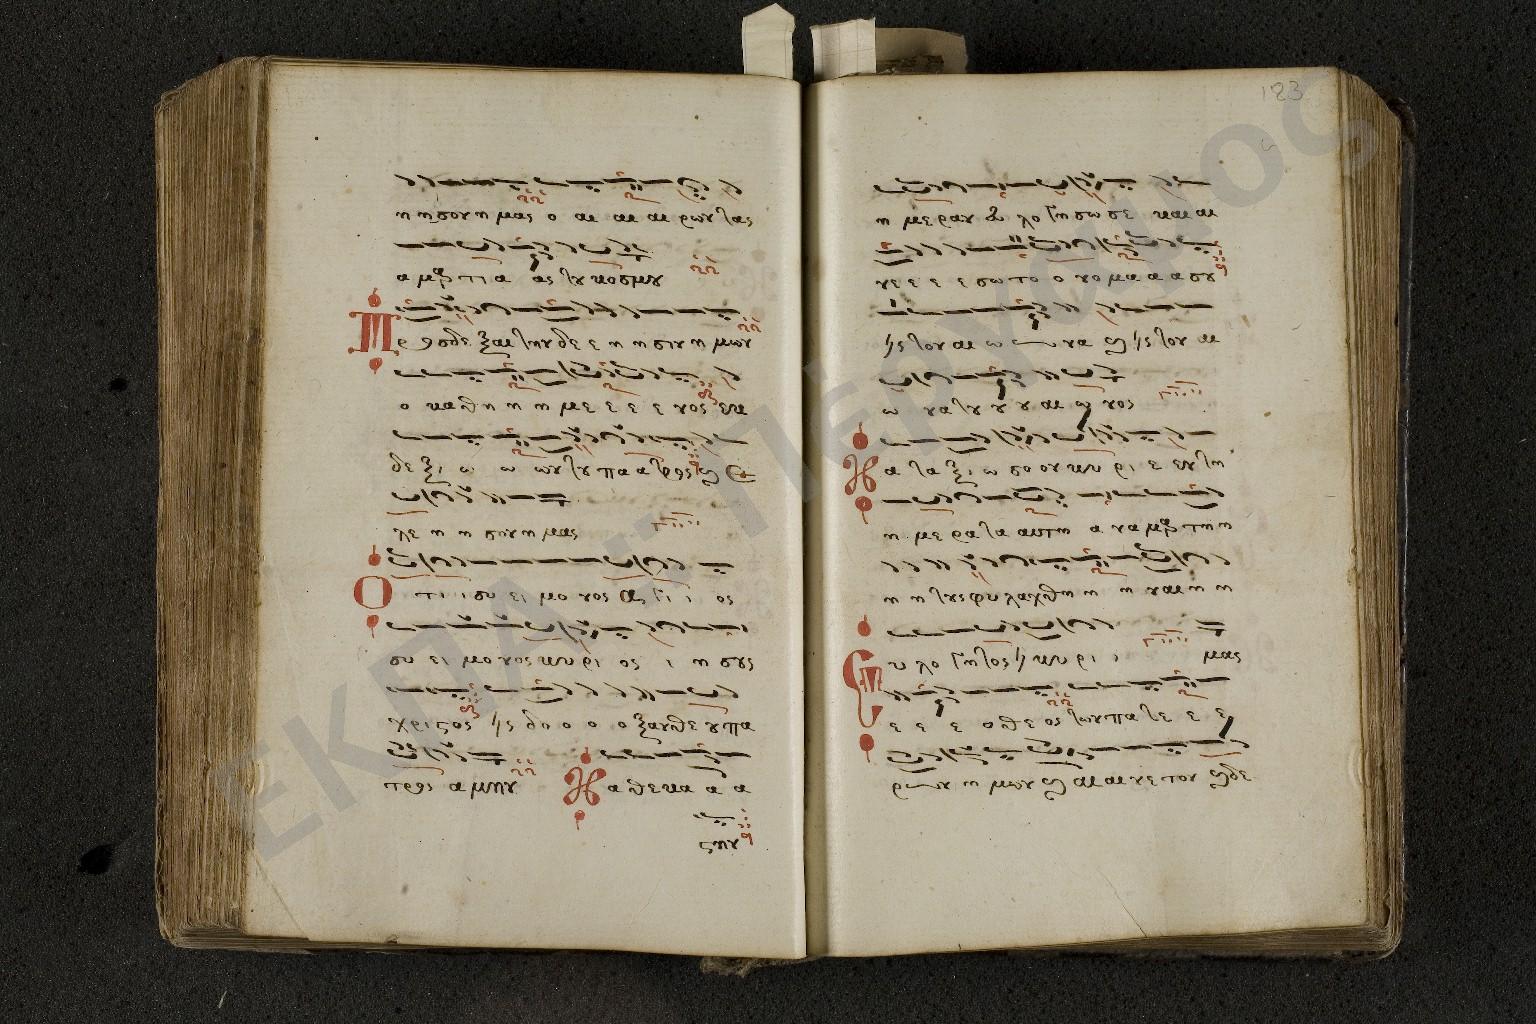 η η σον η μας ο αι αι αι ρων τας
α μαρ τι α ας του κοσμου
Προσδε ξαι την δε ε η η σιν η μων
ο κα θη η η με ε ε ε νος εκ
δε ξι ω ω ων του πα α τρος και ε
λε η η σον η μας
Ο τι ι συ ει μο νος αγι ι ος
συ ει μο νος κυ ρι ος ι η σους
χριστος εις δο ο ο ο ξαν θε ου πα
τρος α μην Κα θε κα α α
στην
183
η με ραν ευ λο γη σω σε και αι
νε ε ε ε σω το ο νο μα α α σου
εις τον αι ω ω να και εις τον αι
ω να του ου ου αι ω νος
Κα τα ξι ω σο ον κυ ρι ε εν τη
η με ρα τα αυτη α να μαρ τη η
η η τους φυ λαχθη η η ναι η η
μας
Ευ λο γη τος ει κυ ρι ι
ε ε ε ο θε ος των πα τε ε ε
ρων η μων και αι αι νε τον και δε
ΕΚΠΑ - ΠΕΡΓΑΜΟΣ